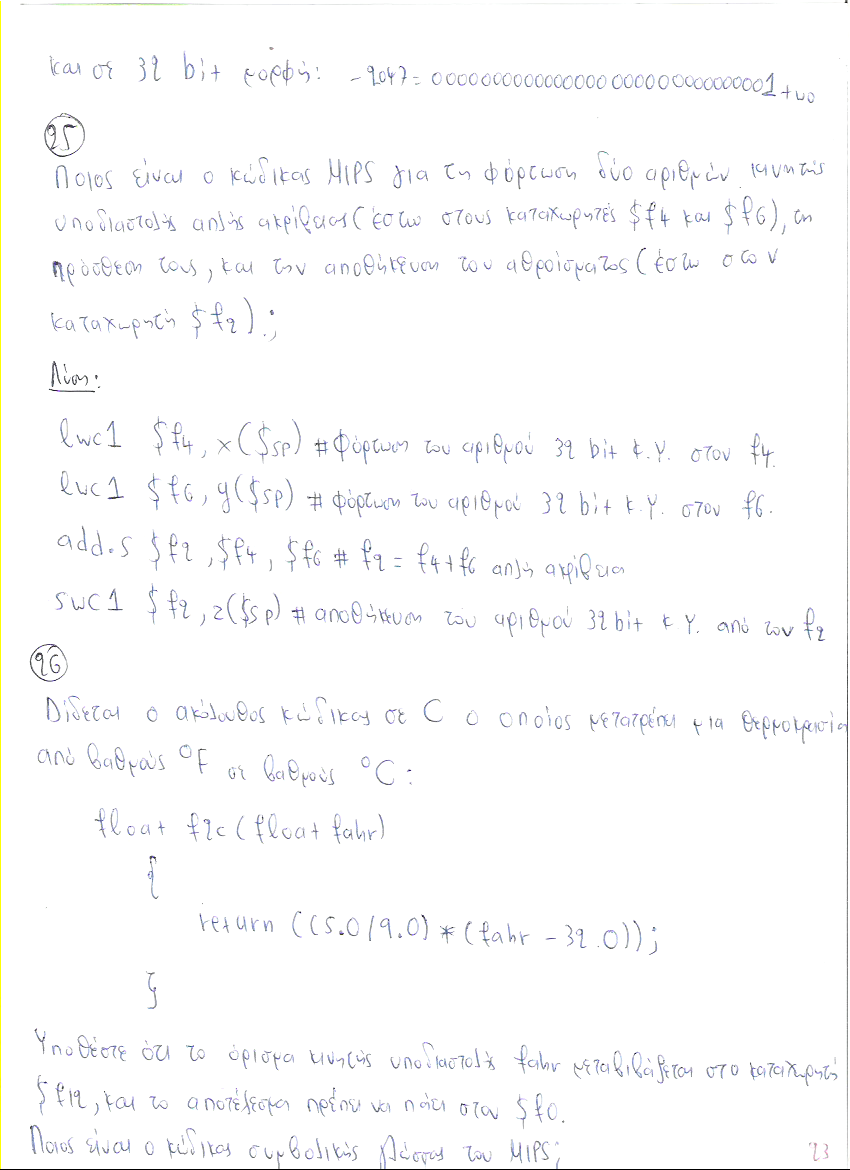 και σε 32 bit μορφή: -2047= 00000000000000000000000000000001+νο
25
Ποιος είναι ο κώδικας MIPS για τη φόρτωση δύο αριθμών κινητής
υποδιαστολής απλής ακρίβειας (έστω στους καταχωρητές $f4 και $f6), τη
πρόσθεση τους, και την αποθήκευση του αθροίσματος (έστω στον
καταχωρητή $f2);
Λύση:
lwc1 $f4, x($sp) # Φόρτωση του αριθμού 32 bit κ.Υ. στον f4.
lwc1 $f6, y($sp) # φόρτωση του αριθμού 32 bit κ.Υ. στον f6.
add.s $f2, $f4, $f6 # f2 = f4+f6 απλή ακρίβεια
swc1 $f2, z($sp) # αποθήκευση του αριθμού 32bit κ Υ. από τον f2
26
Δίδεται ο ακόλουθος κώδικας σε C ο οποίος μετατρέπει μια θερμοκρασία
από βαθμούς °F σε βαθμούς °C:
float f2c (float fahr)
{
return ((5.0/9.0) * (fahr - 32.0));
}
Υποθέστε ότι το όρισμα κινητής υποδιαστολής fahr μεταβιβάζεται στο καταχωρητή
$f12, και το αποτέλεσμα πρέπει να πάει στον $f0.
Ποιος είναι ο κώδικας συμβολικής γλώσσας του MIPS;
23